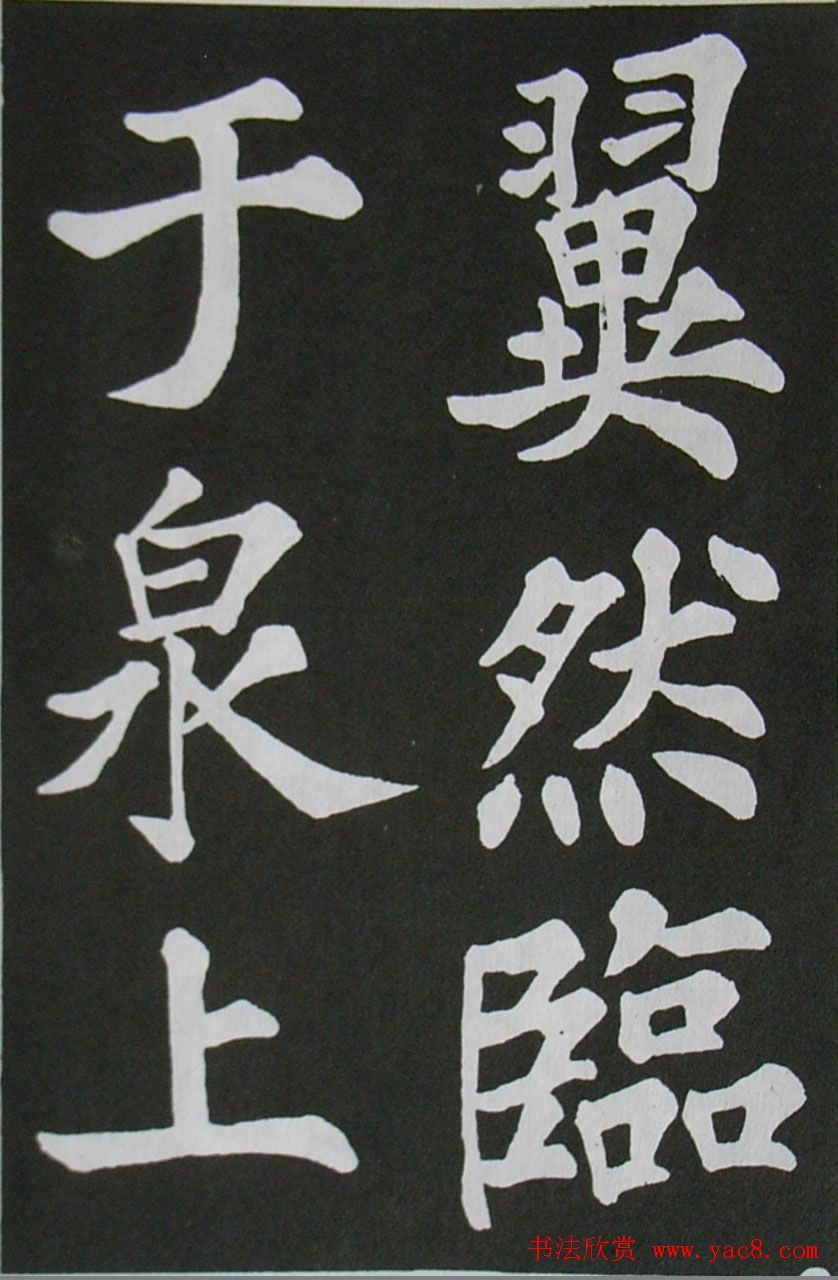 翼然臨
于泉上
书法欣赏 www.yac8.com